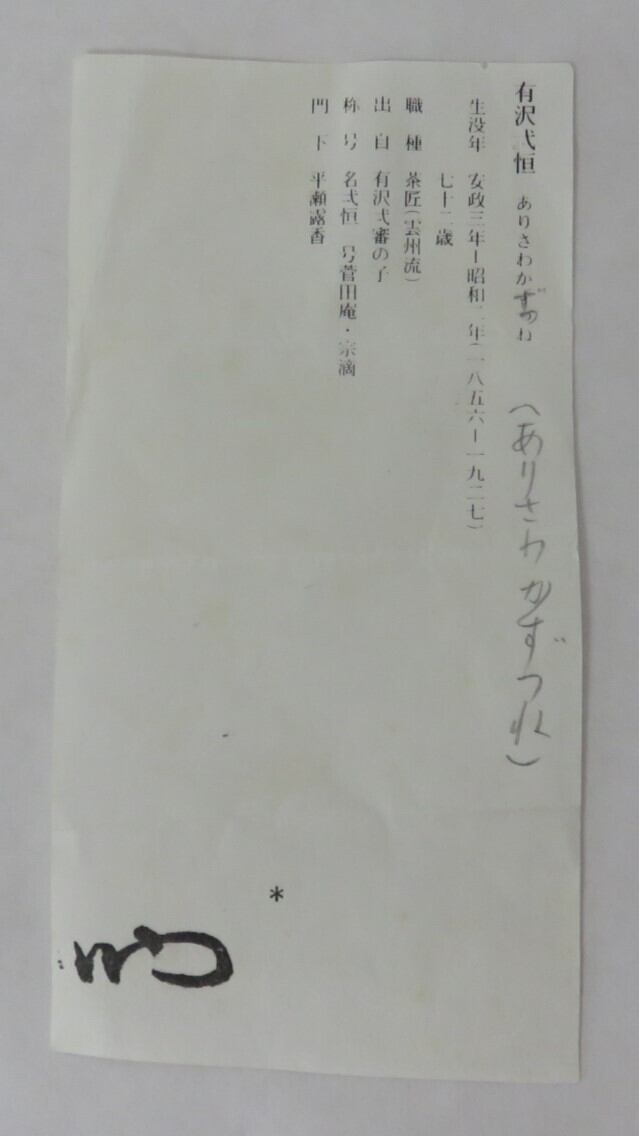 有沢弌恒 ありさわかずつね
(ありさわかずつね)
生没年 安政三年―昭和二年(一八五六―一九二七)
七十二歳
職種 茶匠(雲州流)
出自 有沢弌審の子
称号 名弌恒 号菅田庵・宗滴
門下 平瀬露香
*